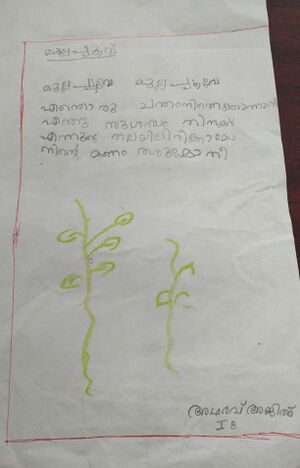 മുല്ലപ്പൂവ്
മുല്ലപ്പൂവേ മുല്ലപ്പൂവേ
എന്തൊരു ചന്തം നിന്നെക്കാണാൻ
എന്തു സുഗന്ധം നിനക്ക്
എന്നുടെ തലയിലിരിക്കാമോ
നിന്റെ മണം തരുമോ നീ
അഥർവ് അജിത്ത്
I B